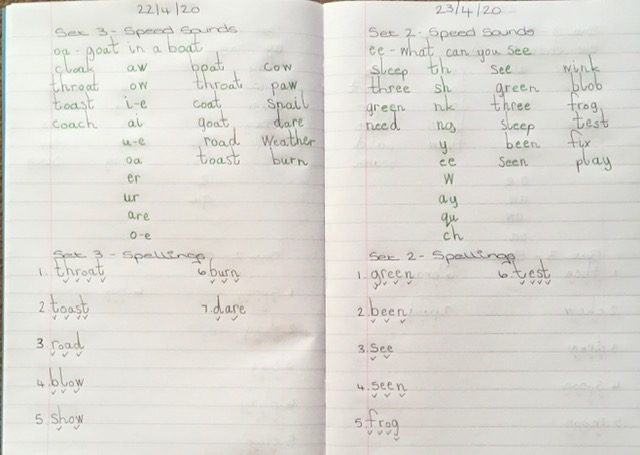 22/4/20
Set 3 - Speed Sounds
oa - goat in a boat
cloak aw boat cow
throat ow throat paw
toast i-e coat snail
coach ai goat dare
u-e road weather
oa toast burn
er
ur
are
o-e
Set 3 - Spellings
1. throat 6. burn
2. toast 7. dare
3. road
4. blow
5. show
23/4/20
Set 2 - Speed Sounds
ee - what can you see
sleep th see wink
three sh green blob
green nk three frog
need ng sleep test
y been fix
ee seen play
w
ay
qu
ch
Set 2 - Spellings
1. green 6. test
2. been
3. see
4. seen
5. frog